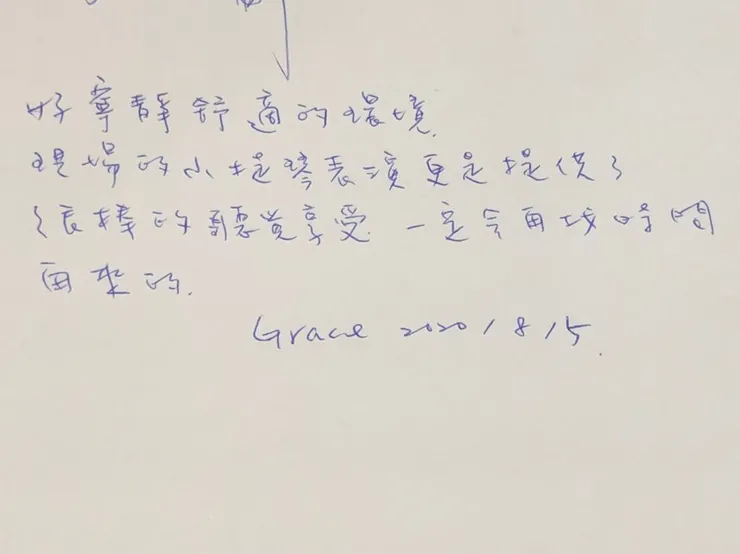 好寧靜舒適的環境.
現場的小提琴表演更是提供了
很棒的聽覺享受. 一定會再找時間
再來的.
Grace 2020/8/5.